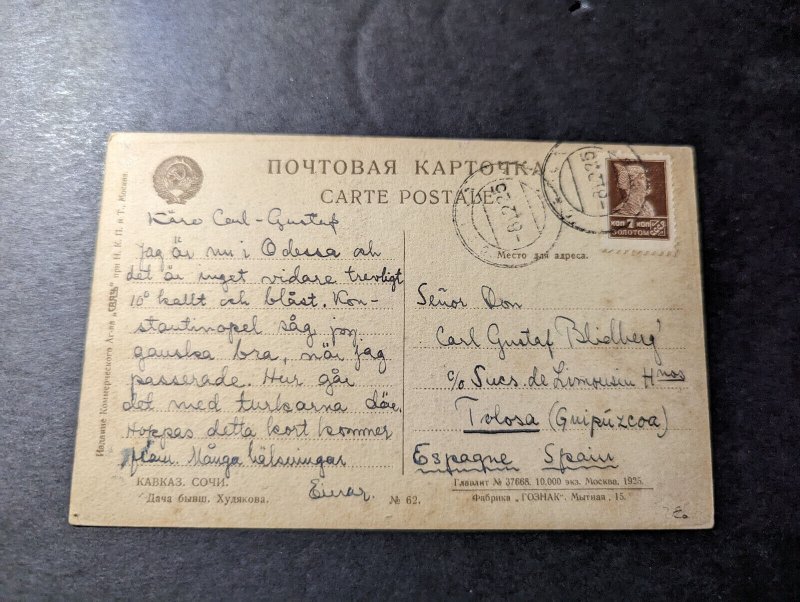 ПОЧТОВАЯ КАРТОЧКА
CARTE POSTALE
Käre Carl-Gustaf
Jag är nu i Odessa och
det är inget vidare trevligt
10° kallt och blåst. Kon-
stantinopel såg jag
ganska bra, när jag
passerade. Hur går
det med turkarna där.
Hoppas detta kort kommer
fram. Många hälsningar
Einar.
КАВКАЗ. СОЧИ.
Дача бывш. Худякова.
№ 62.
Издание Коммерческого Аг-ва „СВЯЗЬ" при Н. К. П. и Т., Москва.
КОП 7 КОП
ЗОЛОТОМ
-8.12.25
Место для адреса.
Señor Don
Carl Gustaf Blidberg
c/o Sucs. de Limousin Hnos
Tolosa (Guipúzcoa)
Espagne Spain
Главлит № 37668. 10.000 экз. Москва. 1925.
Фабрика „ГОЗНАК". Мытная, 15.